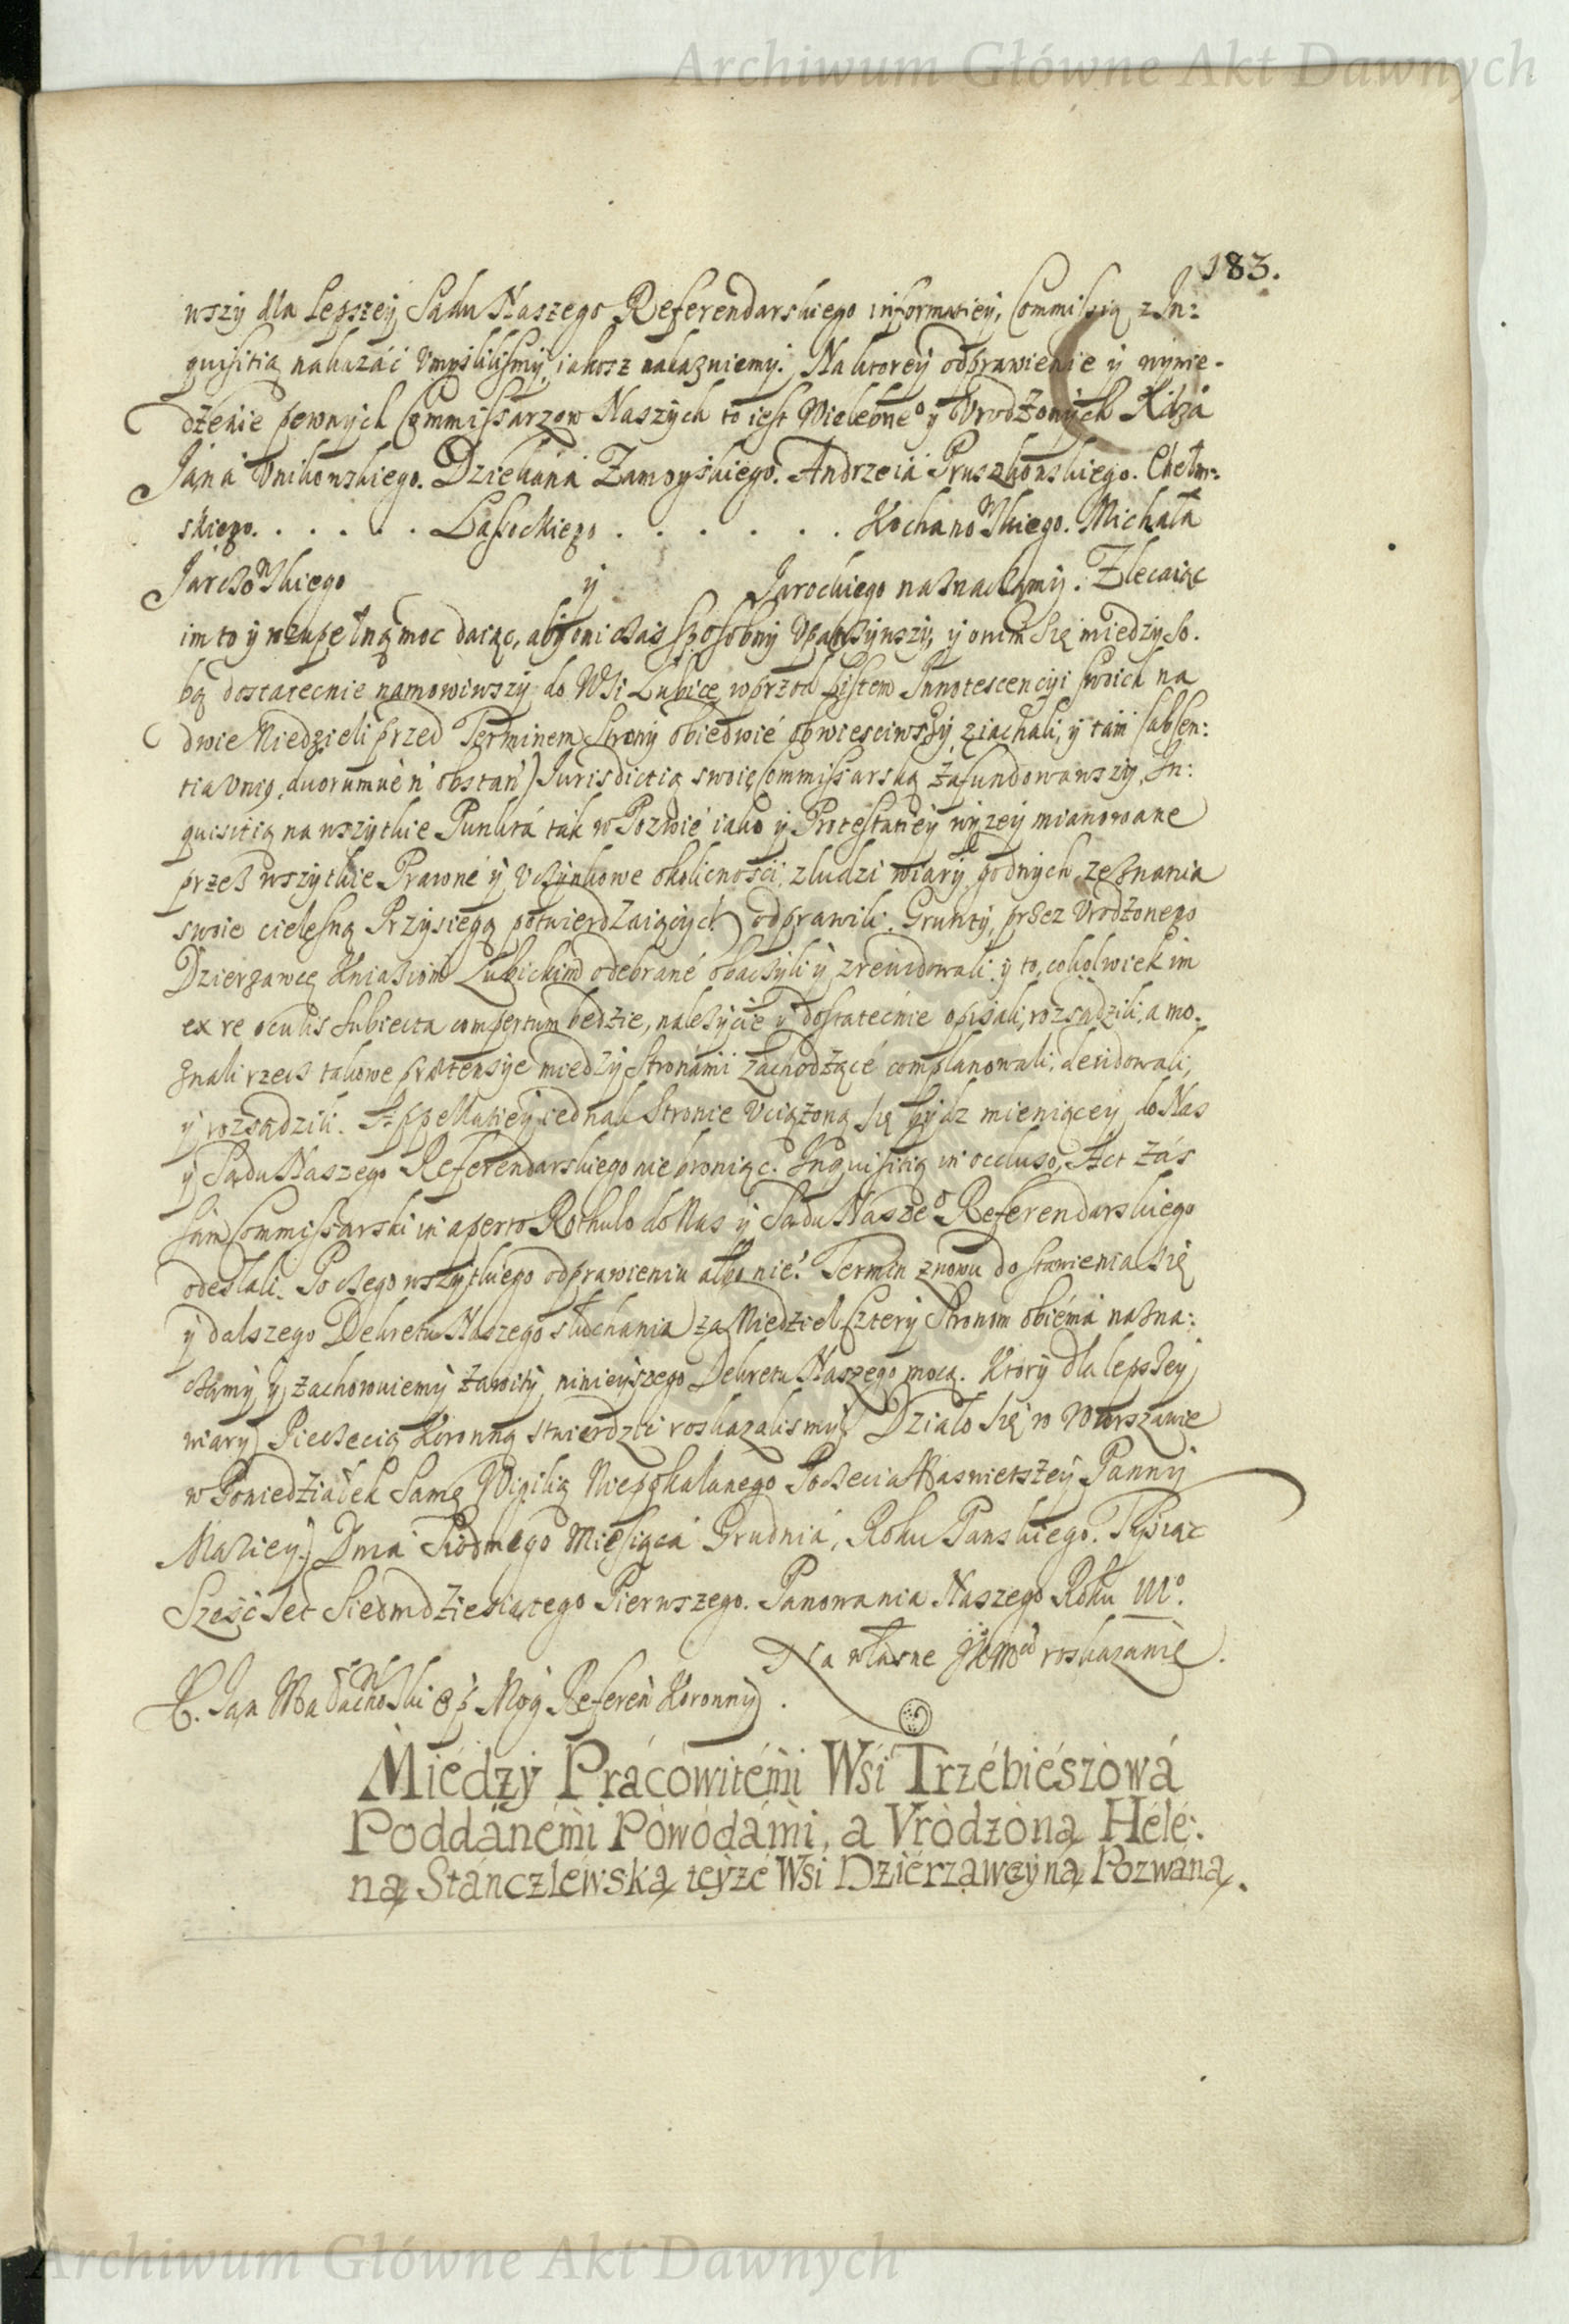 Archiwum Główne Akt Dawnych
183.
wszy dla lepszey Sądu Naszego Referendarskiego informatiey, Commissią z In:
quisitią nakazáć Vmysliliśmy, iakosz nakazuiemy. Na ktorey odprawienie y wywie-
dzenie pewnych Commissarzow Naszych to iest Wielebneo y Vrodzonych Xiędza
Jana Vnikowskiego. Dziekana Zamoyskiego. Andrzeia Pruszkowskiego. Chełm:
skiego. . . . . . Lasockiego . . . . . . Kochanowskiego. Michała
Jarczowskiego y Jarockiego naznaczamy. Zlecaiąc
im to y wzupełną moc daiąc, aby oni czas sposobny vpatrzywszy, y onim się między so-
bą dostatecnie namowiwszy do Wsi Łubice wprzod Listem Innotescencyi swoich na
dwie Niedzieli przed Terminem Strony obiedwie obwiesciwszy, ziachali, y tam (absen:
tia vnig, duorumue ń obstań) Jurisdictią swoię Commissarską zafundowawszy, In:
quisitią na wszytkie Punkta tak w Pozwie iako y Protestatiey wyzey mianowane
przez wszytkie Prawne y Vczynkowe okolicnosci, z ludzi wiary godnych, zeznania
swoie cielesną Przysięgą potwierdzaiących odprawili. Grunty, przez Vrodzonego
Dzierzawcę Kniaziom Łubickim odebrane obaczyli y zrewidowali. y to, cokolwiek im
ex re oculis subiecta compertum bedzie, nalezycie y dostatecnie opisali, rozsądzili, a mo-
żnali rzecz takowe prætensye między Stronami zachodzące complanowali, decidowali,
y rozsądzili. Appellatiey iednak Stronie Vciążoną się bydz mieniącey, do Nas
y Sądu Naszego Referendarskiego nie broniąc. Inquisitią in occluso, Act zaś
sam Commissarski in aperto Rothulo do Nas y Sądu Naszeo Referendarskiego
odesłali. Po czego wszytkiego odprawieniu albo nie. Termin znowu do stawienia się
y dalszego Dekretu Naszego słuchania za Niedziel Cztery Stronom obiema nazna:
czamy, y zachowuiemy zawity, ninieyszego Dekretu Naszego mocą. Ktory dla lepszey
wiary Pieczecią Koronną stwierdzić roskazalismy. Działo się w Warszawie
w Poniedziałek Samą Wigilią Niepokalanego Poczecia Naswietszey Panny
Maryey. Dnia Siodmego Miesiąca Grudnia, Roku Panskiego. Tysiąc
Szesc Set Siedmdziesiątego Pierwszego. Panowania Naszego Roku IIIo.
Na własne JKMci roskazanie.
X. Jan Małachowski Mog Referen Koronny.
Miedzy Pracowitemi Wsi Trzebieszowa
Poddanemi Powodami, a Vrodzoną Hele:
ną Stanczlewską teyże Wsi Dzierzawczyną Pozwaną.
Archiwum Główne Akt Dawnych